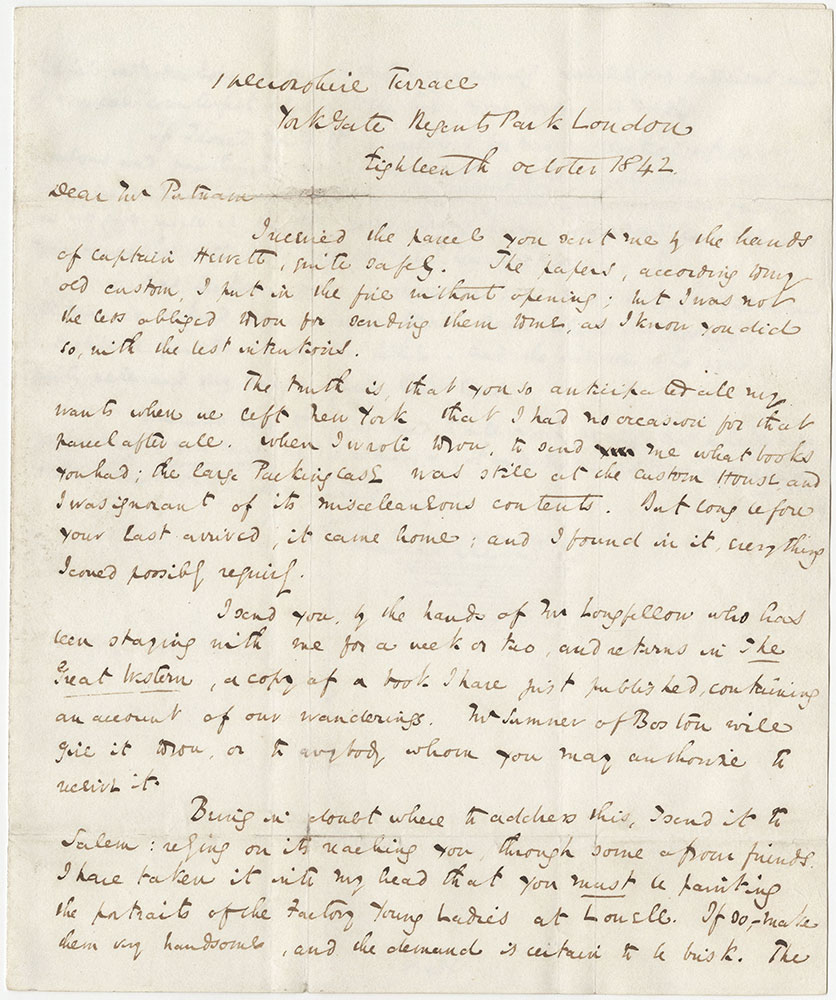 1 Devonshire Terrace
York Gate Regents Park London
Eighteenth October 1842.
Dear Mr Putnam
I received the parcel you sent me by the hands
of Captain Hewett, quite safely. The papers, according to my
old custom, I put in the fire without opening; but I was not
the less obliged to you for sending them to me, as I know you did
so, with the best intentions.
The truth is, that you so anticipated all my
wants when we left New York that I had no occasion for that
parcel after all. When I wrote to you, to send me what books
you had; the large Packing Case was still at the Custom House, and
I was ignorant of its miscellaneous contents. But long before
your last arrived, it came home; and I found in it, everything
I could possibly require.
I send you, by the hands of Mr Longfellow who has
been staying with me for a week or two, and returns in The
Great Western, a copy of a book I have just published, containing
an account of our wanderings. Mr Sumner of Boston will
give it to you, or to anybody whom you may authorize to
receive it.
Being in doubt where to address this, I send it to
Salem: relying on its reaching you, through some of your friends.
I have taken it into my head that you must be painting
the portraits of the Factory Young Ladies at Lowell. If so,–make
them very handsome, and the demand is certain to be brisk. The